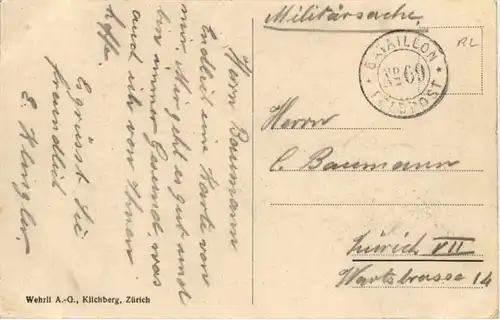 Herrn Baumann
Endlich eine Karte von
mir. Mir geht es gut und
bin immer Gesund, was
auch ich von Ihnen
hoffe.
Es grüsst Sie
freundlich
E. Klingler.
Wehrli A.-G., Kilchberg, Zürich
Militärsache
BATAILLON
No 69
FELDPOST
RL
Herrn
C. Baumann
Zürich VII
Wartstrasse 14